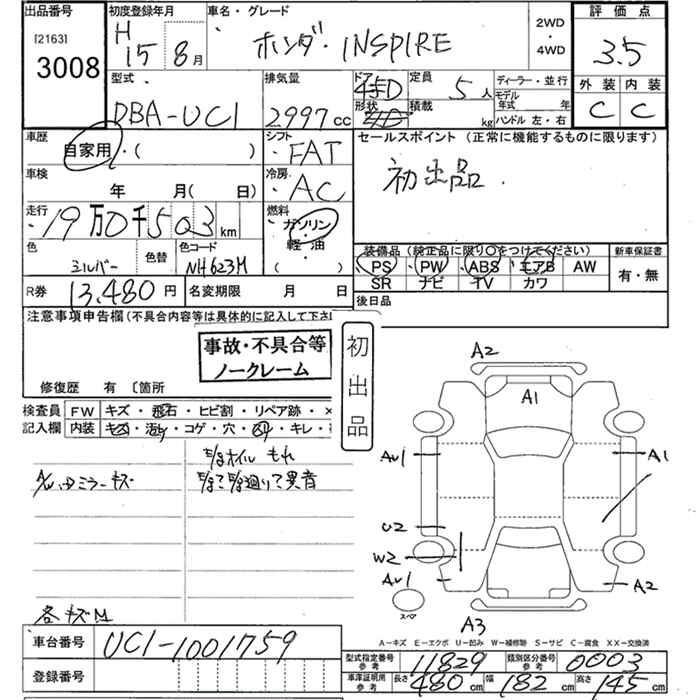 出品番号 初度登録年月 車名・グレード 2WD・4WD 評価点
[2163] H 15 8月 ホンダ・INSPIRE 3.5
3008 外装 内装
型式 排気量 ドア 定員 ディーラー・並行 C C
DBA-UC1 2997cc 4ドD 形状 積載 5人 kg モデル年式 年 ハンドル 左・右
車歴 シフト セールスポイント (正常に機能するものに限ります)
自家用・( ) FAT 初出品.
車検 冷房
年 月( 日) AC
走行 燃料
19万0千503km ガソリン・軽油
色 色替 色コード ( )
シルバー NH623M
装備品 (純正品に限り○をつけてください) 新車保証書
PS PW ABS エアB AW 有・無
SR ナビ TV カワ
R券 13,480円 名変期限 月 日 後日品
注意事項申告欄(不具合内容等は具体的に記入して下さ
事故・不具合等
ノークレーム
初出品
修復歴 有 〔箇所
検査員 FW キズ・飛石・ヒビ割・リペア跡・×
記入欄 内装 キズ・汚れ・コゲ・穴・スリ・キレ・
オイルもれ
ミラーキズ 異音
各キズM
A2
A1
AU1 A1
U2
W2
AU1 A2
スペア
A3
A-キズ E-エクボ U-凹み W-補修跡 S-サビ C-腐食 XX-交換済
車台番号 UC1-1001759
登録番号
型式指定番号参考 11829 類別区分番号参考 0003
車庫証明用参考 長さ 480cm 幅 182cm 高さ 145cm